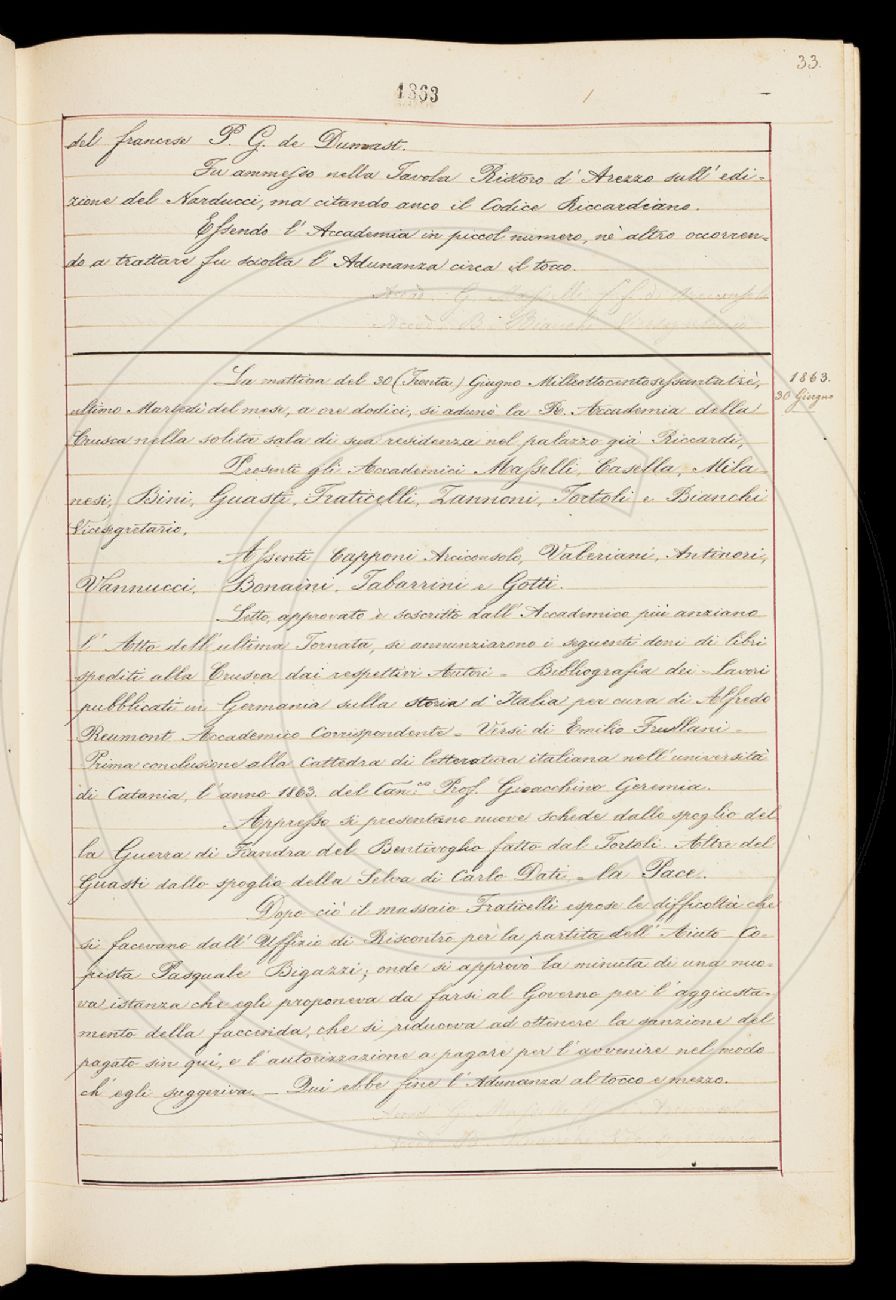 33.
1863
del francese P. G. de Dumast.
Fu ammesso nella Tavola Ristoro d'Arezzo sull'edi=
zione del Narducci, ma citando anco il Codice Riccardiano.
Essendo l'Accademia in piccol numero, nè altro occorren=
do a trattare fu sciolta l'Adunanza circa il tocco.
Accad. G. Masselli f. f. di Arciconsolo
Accad. B. Bianchi Vicesegretario
1863.
30 Giugno
La mattina del 30 (Trenta) Giugno Milleottocentosessantatrè,
ultimo Martedì del mese, a ore dodici, si adunò la R. Accademia della
Crusca nella solita sala di sua residenza nel palazzo già Riccardi,
Presenti gli Accademici Masselli, Casella, Mila=
nesi, Bini, Guasti, Fraticelli, Zannoni, Tortoli e Bianchi
Vicesegretario.
Assenti Capponi Arciconsolo, Valeriani, Antinori,
Vannucci, Bonaini, Tabarrini e Gotti.
Letto, approvato e soscritto dall'Accademico più anziano
l'Atto dell'ultima Tornata, si annunziarono i seguenti doni di libri
spediti alla Crusca dai respettivi Autori = Bibliografia dei lavori
pubblicati in Germania sulla storia d'Italia per cura di Alfredo
Reumont Accademico Corrispondente = Versi di Emilio Frullani =
Prima conclusione alla Cattedra di letteratura italiana nell'università
di Catania, l'anno 1863. del Can.co Prof. Gioacchino Geremia.
Appresso si presentarono nuove schede dallo spoglio del
la Guerra di Fiandra del Bentivoglio fatto dal Tortoli. Altre del
Guasti dallo spoglio della Selva di Carlo Dati = la Pace.
Dopo ciò il massaio Fraticelli espose le difficoltà che
si facevano dall'Uffizio di Riscontro per la partita dell'Aiuto Co=
pista Pasquale Bigazzi; onde si approvò la minuta di una nuo=
va istanza che egli proponeva da farsi al Governo per l'aggiusta=
mento della faccenda, che si riduceva ad ottenere la sanzione del
pagato sin qui, e l'autorizzazione a pagare per l'avvenire nel modo
ch'egli suggeriva. — Qui ebbe fine l'Adunanza al tocco e mezzo.